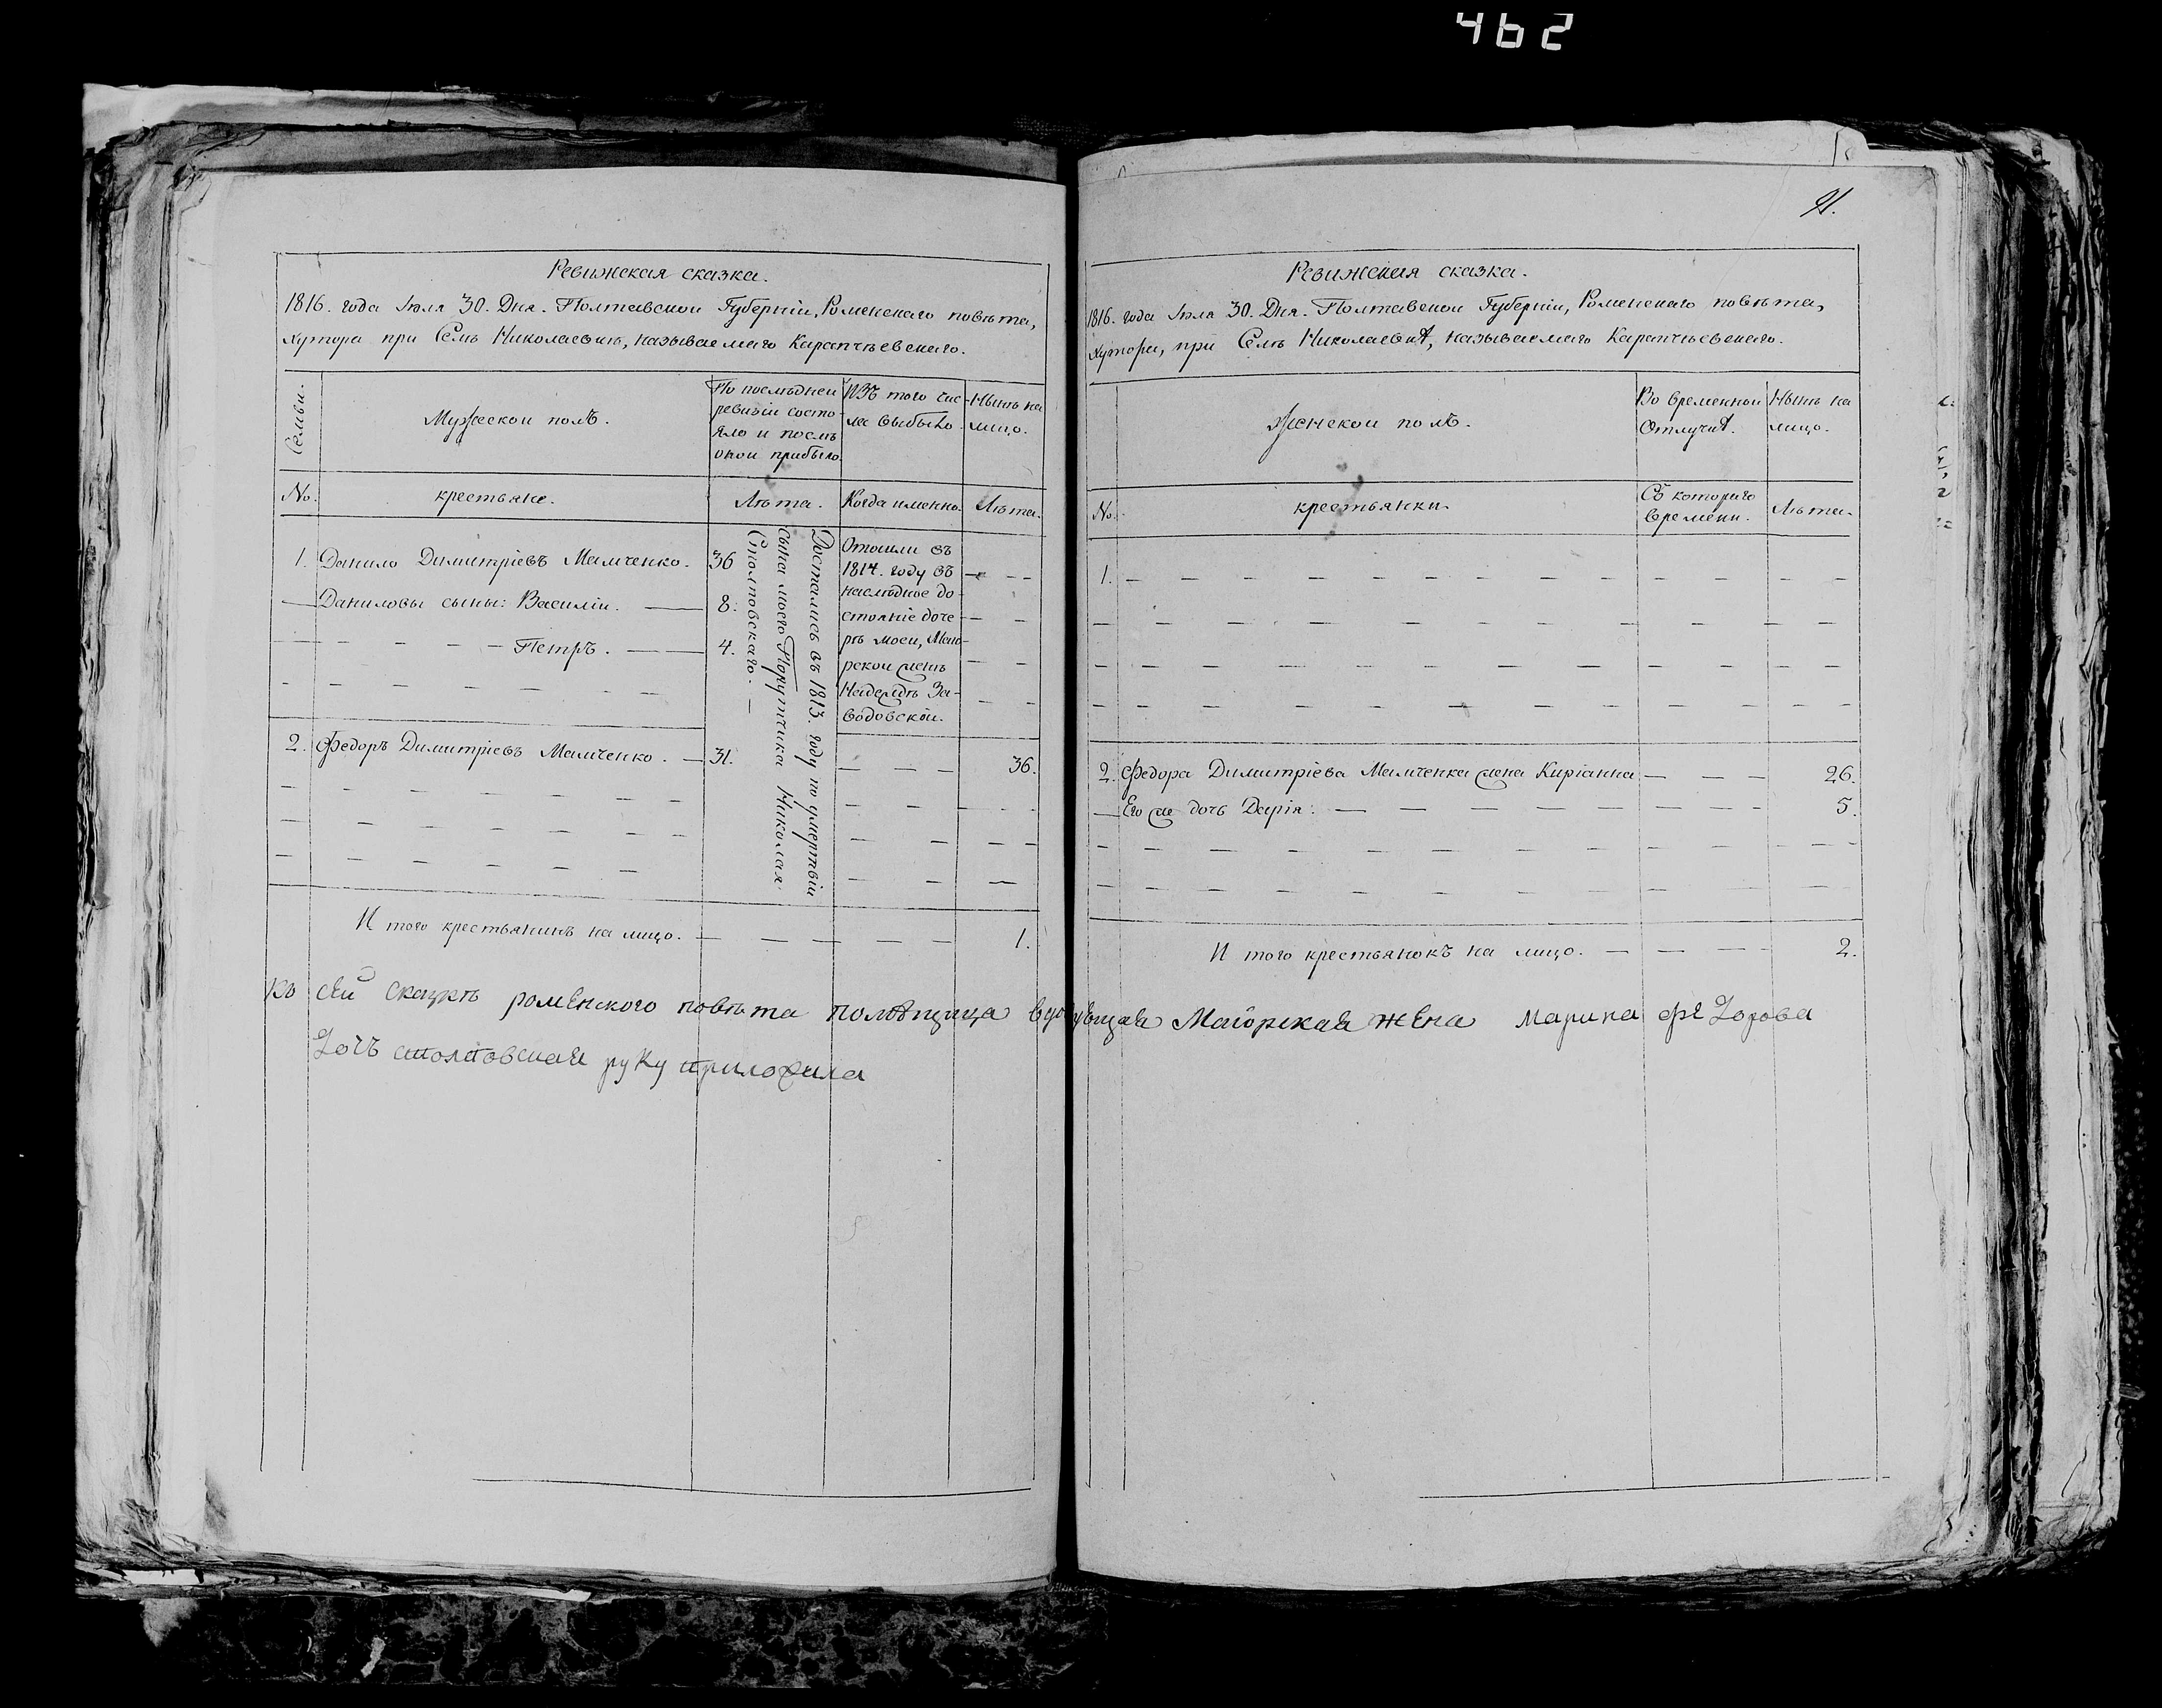 462
91.
Ревижская сказка.
1816. года Іюля 30. Дня. Полтавской Губерніи, Роменскаго повѣта,
Хутора при Селѣ Николаевкѣ, называемаго Карапчѣевскаго.
Семьи.
Мужеской полъ.
По послѣдней
ревизіи состо-
яло и послѣ
оной прибыло.
Изъ того чис-
ла выбыло.
Нынѣ на
лицо.
No. крестьяне. Лѣта. Когда именно. Лѣта.
1. Данило Димитріевъ Мамченко. 36
Даниловы сыны: Василій. 8.
Петръ. 4.
Достались въ 1813. году по умертвіи
сына моего Порутчика Николая
Столповскаго.
Отошли въ
1814. году въ
наслѣдное до-
стояніе доче-
рѣ моей, Маио-
рской женѣ
Надеждѣ За-
водовской.
2. Федоръ Димитріевъ Мамченко. 31. 36.
И того крестьянинъ на лицо. 1.
Ревижская сказка.
1816. года Іюля 30. Дня. Полтавской Губерніи, Роменскаго повѣта,
Хутора, при Селѣ Николаевкѣ, называемаго Карапчѣевскаго.
Женской полъ.
Во временной
Отлучкѣ.
Нынѣ на
лицо.
No. крестьянки.
Съ котораго
времени.
Лѣта.
1.
2. Федора Димитріева Мамченка жена Киріанна 26.
Его же дочь Дарія. 5.
И того крестьянокъ на лицо. 2.
Къ сей сказкѣ роменского повѣта помѣщица вдовующая Маиорская жена марина федорова
дочъ столповская руку приложила